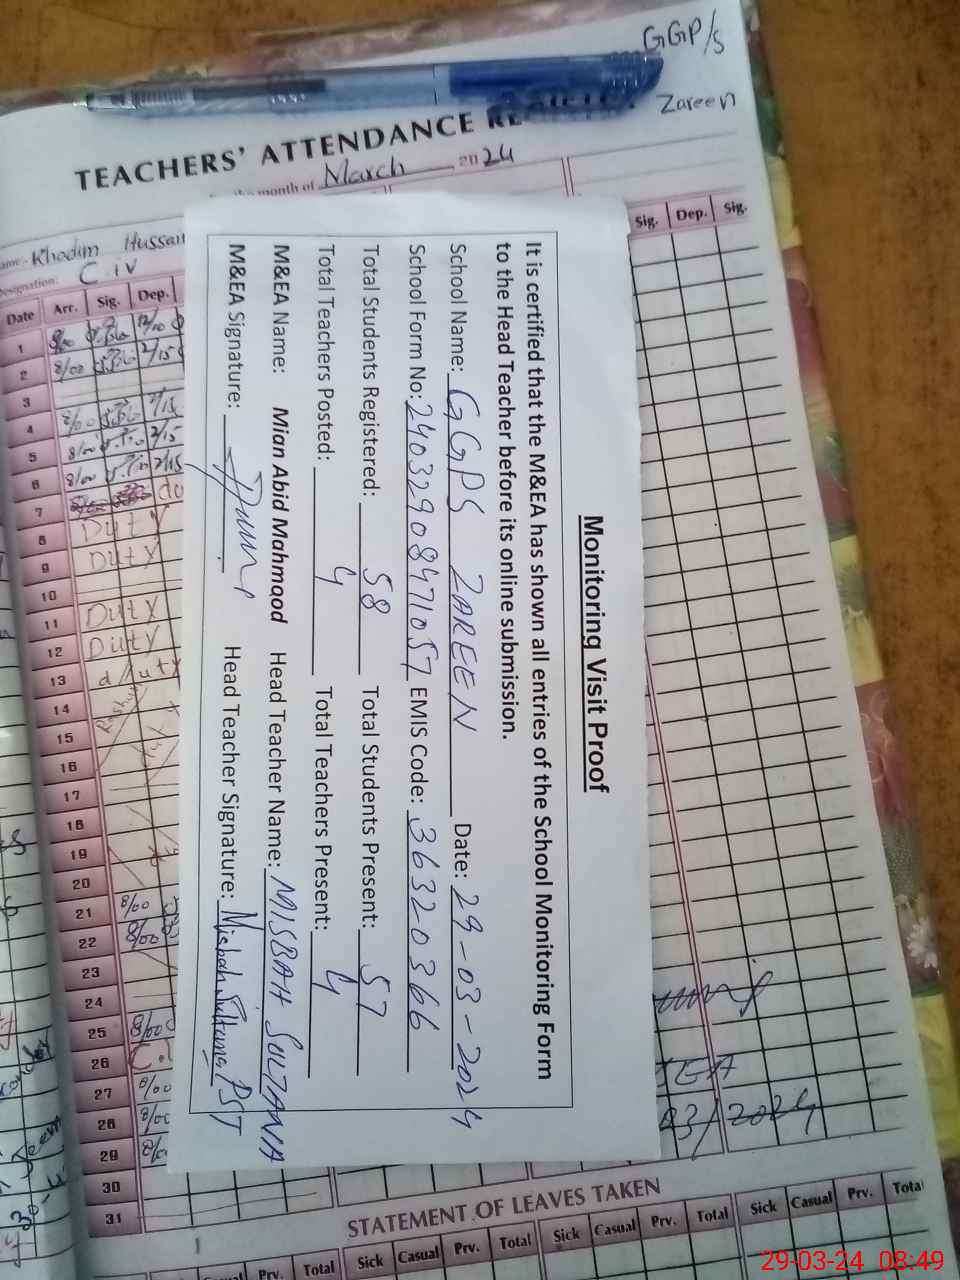 GGP/s
Zareen
TEACHERS' ATTENDANCE
month of March 2024
Khadim Hussain
Designation: C.iv
Sig. Dep. Sig.
Date Arr. Sig. Dep.
1 8/00 12/00
2 8/00 2/15
3
4 8/00 2/15
5 8/00 2/15
6 8/00 2/15
7
8 Duty
9 Duty
10
11 Duty
12 Duty
13
14
15
16
17
18
19
20
21 8/00
22 8/00
23
24
25 8/00
26
27 8/00
28 8/00
29 8/00
30
31
Monitoring Visit Proof
It is certified that the M&EA has shown all entries of the School Monitoring Form
to the Head Teacher before its online submission.
School Name: GGPS ZAREEN Date: 29-03-2024
School Form No: 24032908471057 EMIS Code: 36320366
Total Students Registered: 58 Total Students Present: 57
Total Teachers Posted: 4 Total Teachers Present: 4
M&EA Name: Mian Abid Mahmood Head Teacher Name: MISBAH SULTANA
M&EA Signature: Head Teacher Signature: Misbah Sultana PST
03/2024
STATEMENT OF LEAVES TAKEN
Prv. Total Sick Casual Prv. Total Sick Casual Prv. Total Sick Casual Prv. Total
29-03-24 08:49